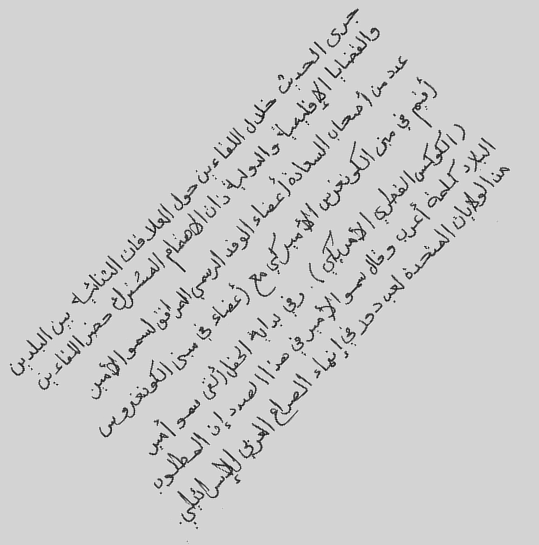 جرى الحديث خلال اللقاءين حول العلاقات الثنائية بين البلدين
والقضايا الإقليمية والدولية ذات الاهتمام المشترك حضر اللقاءين
عدد من أصحاب السعادة أعضاء الوفد الرسمي المرافق لسمو الأمير
أقيم في مبنى الكونغرس الأميركي مع أعضاء في مبنى الكونغروس
(الكوكس القطري الأمريكي). وفي بداية الحفل ألقى سمو أمير
البلاد كلمة أعرب وقال سمو الأمير في هذا الصدد إن المطلوب
من الولايات المتحدة لعب دور في إنهاء الصراع العربي الإسرائيلي